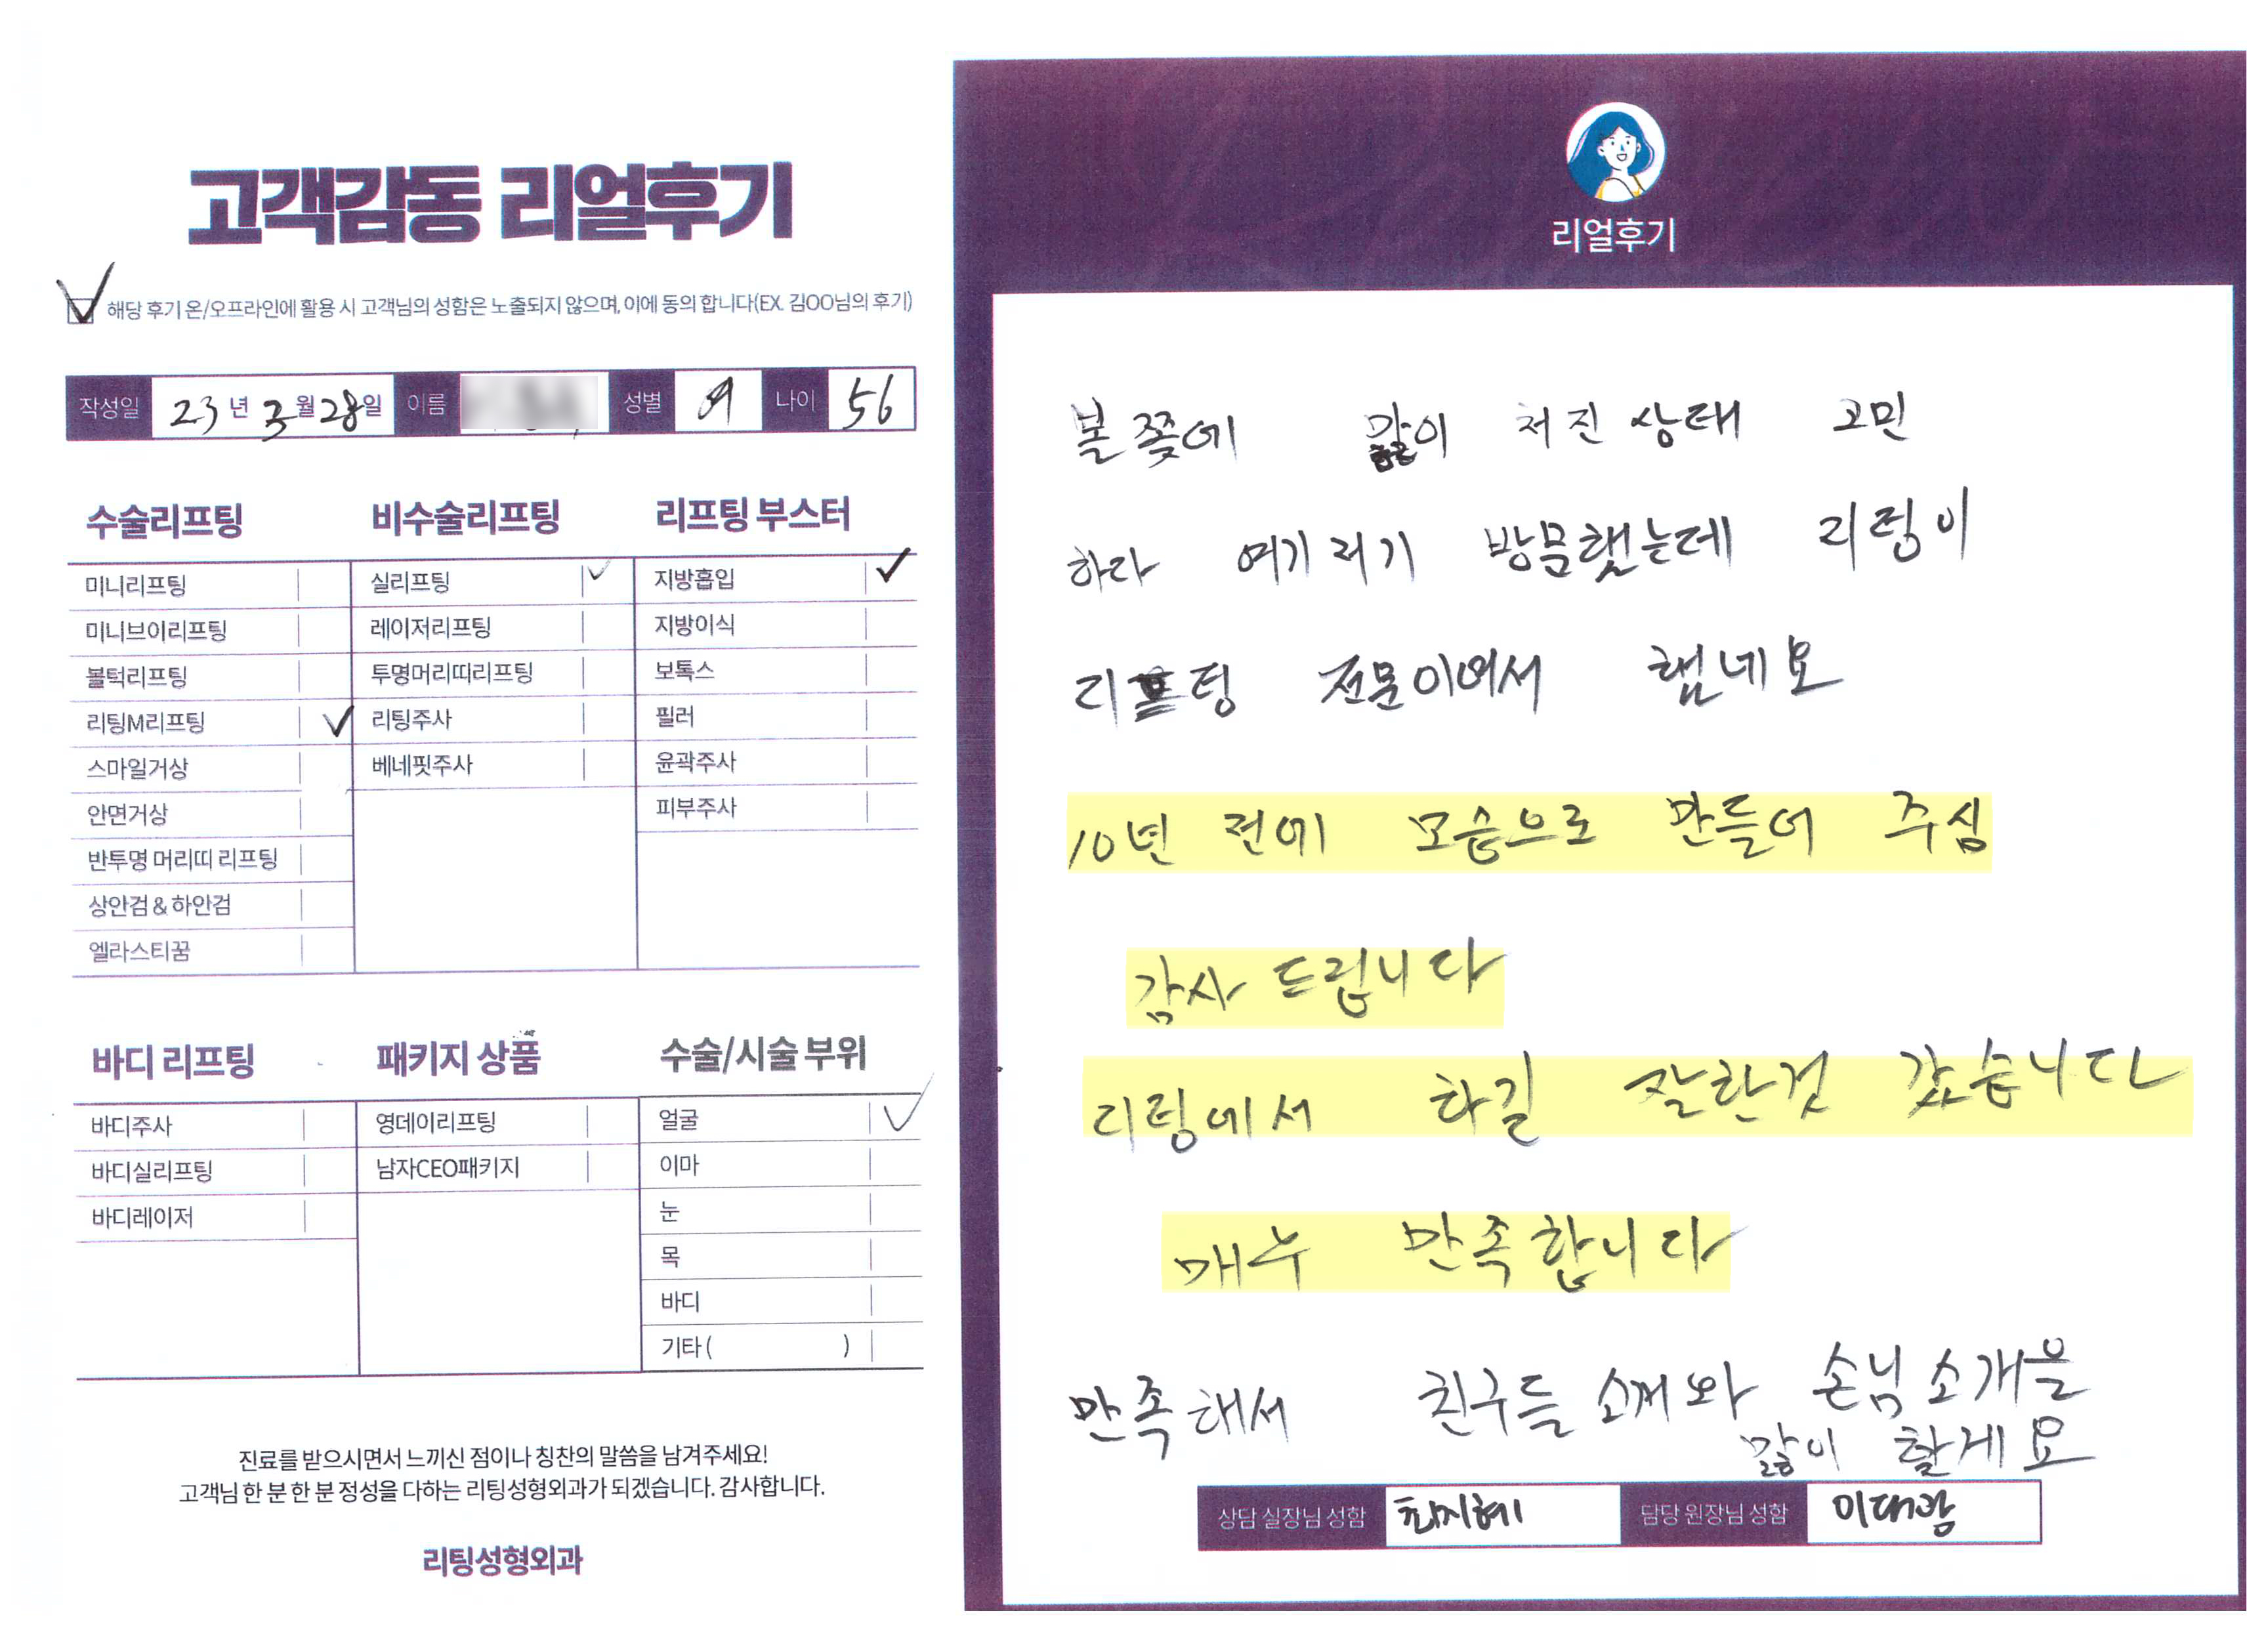 고객감동 리얼후기
해당 후기 온/오프라인에 활용 시 고객님의 성함은 노출되지 않으며, 이에 동의 합니다(EX. 김OO님의 후기)
작성일 23년 3월 28일 이름 성별 여 나이 56
수술리프팅
미니리프팅
미니브이리프팅
볼턱리프팅
리팅M리프팅
스마일거상
안면거상
반투명 머리띠 리프팅
상안검 & 하안검
엘라스티꿈
비수술리프팅
실리프팅
레이저리프팅
투명머리띠리프팅
리팅주사
베네핏주사
리프팅 부스터
지방흡입
지방이식
보톡스
필러
윤곽주사
피부주사
바디 리프팅
바디주사
바디실리프팅
바디레이저
패키지 상품
영데이리프팅
남자CEO패키지
수술/시술 부위
얼굴
이마
눈
목
바디
기타 ( )
진료를 받으시면서 느끼신 점이나 칭찬의 말씀을 남겨주세요!
고객님 한 분 한 분 정성을 다하는 리팅성형외과가 되겠습니다. 감사합니다.
리팅성형외과
리얼후기
볼쪽에 많이 처진 상태 고민
하다 여기저기 방문했는데 리팅이
리프팅 전문이여서 했네요
10년 전에 모습으로 만들어 주심
감사 드립니다
리팅에서 하길 잘한것 같습니다
매우 만족합니다
만족해서 친구들 소개와 손님소개을
많이 할게요
상담 실장님 성함 담당 원장님 성함